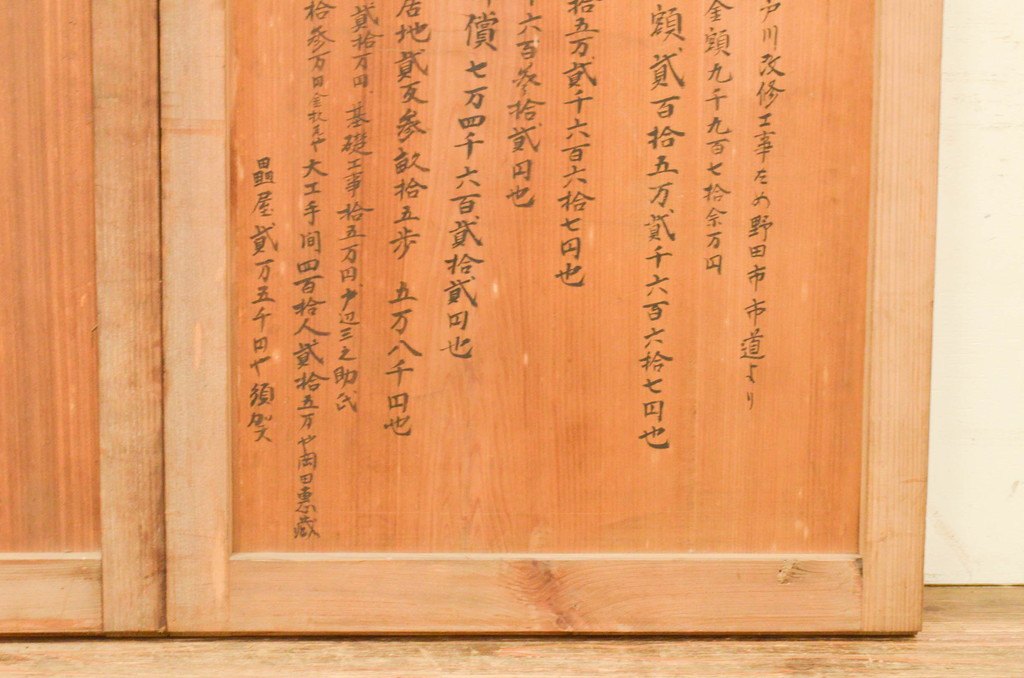 戸川改修工事ため野田市市道より
金額九千九百七拾余万円
額貳百拾五万貳千六百六拾七円也
拾五万貳千六百六拾七円也
六百参拾貳円也
償七万四千六百貳拾貳円也
居地貳反参畝拾五歩 五万八千円也
貳拾万円、基礎工事拾五万円 辺三之助氏
拾参万円 や大工手間四百拾人貳拾五万や岡田恵蔵
畳屋貳万五千円や須賀